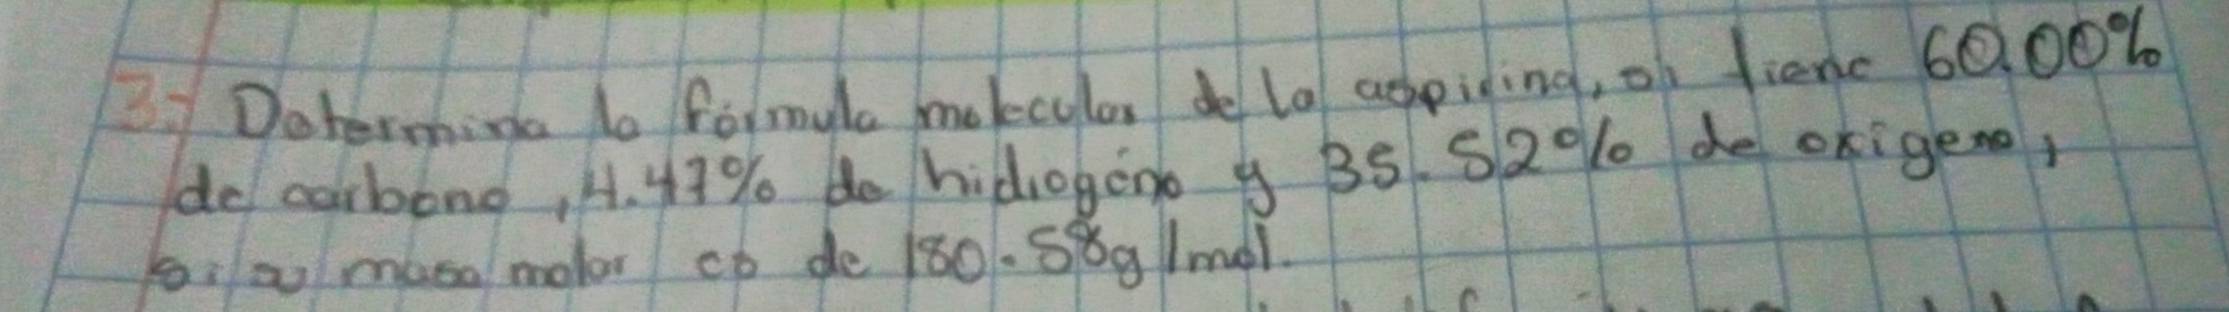 3.- Determina la fórmula molecular de la aspirina, si tiene 60.00%
de carbono, 4.47% de hidrogeno y 35.52% de oxigeno,
si su masa molar es de 180.58g/mol.